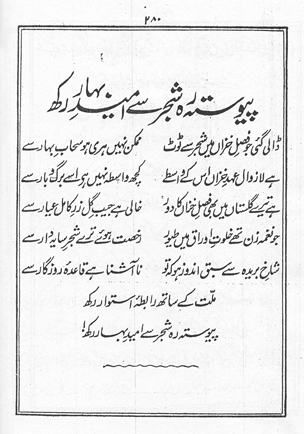 ۲۸۰
پیوستہ رہ شجر سے امیدِ بہار رکھ
ڈالی گئی جو فصلِ خزاں میں شجر سے ٹوٹ ممکن نہیں ہری ہو سحابِ بہار سے
ہے لازوال عہدِ خزاں اس کے واسطے کچھ واسطہ نہیں ہے اسے برگ و بار سے
ہے تیرے گلستاں میں بھی فصلِ خزاں کا دور خالی ہے جیبِ گل زرِ کامل عیار سے
جو نغمہ زن تھے خلوتِ اوراق میں طیور رخصت ہوئے ترے شجرِ سایہ دار سے
شاخِ بریدہ سے سبق اندوز ہو کہ تو ناآشنا ہے قاعدۂ روزگار سے
ملّت کے ساتھ رابطۂ استوار رکھ
پیوستہ رہ شجر سے امیدِ بہار رکھ!